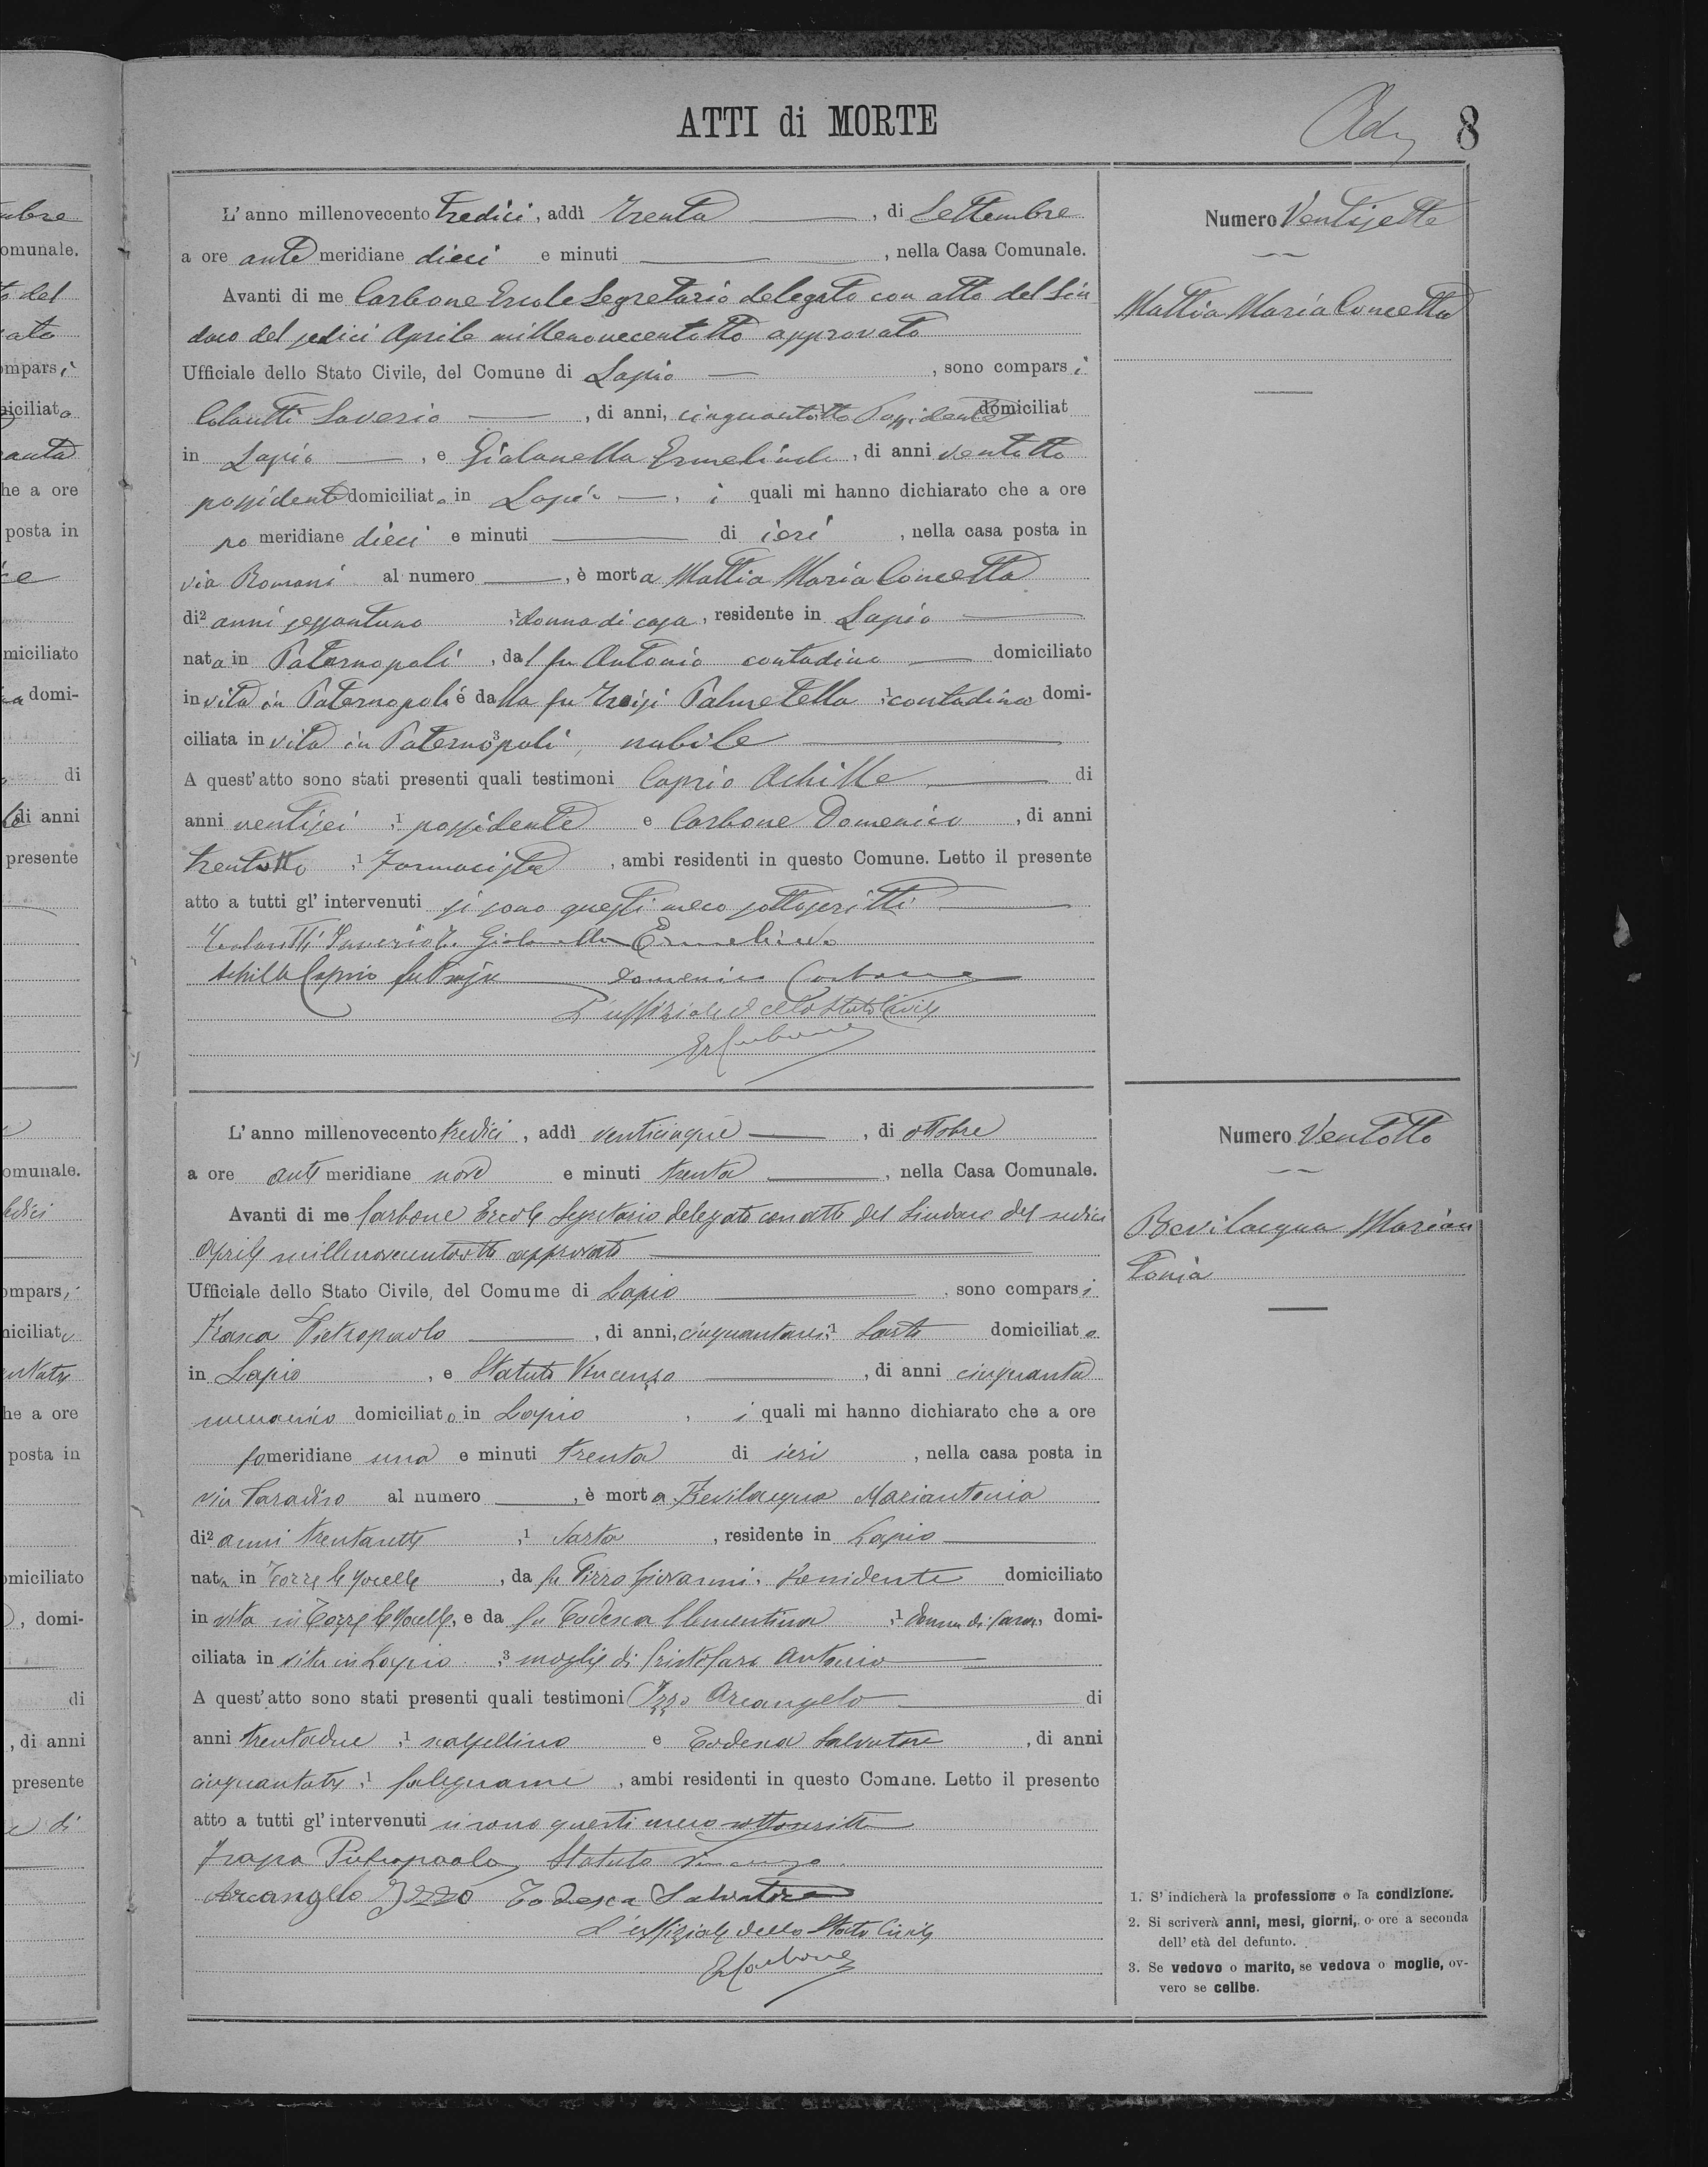 ATTI di MORTE
8
L'anno millenovecento tredici, addì trenta, di Settembre
a ore ante meridiane dieci e minuti, nella Casa Comunale.
Avanti di me Carbone Ercole Segretario delegato con atto del Sin
daco del sedici Aprile millenovecentotto approvato
Ufficiale dello Stato Civile, del Comune di Lapio, sono comparsi
Colantti Saverio, di anni, cinquantotto Possidente domiciliat
in Lapio, e Giolanella Ermelindo, di anni ventotto
possidente domiciliato in Lapio, i quali mi hanno dichiarato che a ore
po meridiane dieci e minuti di ieri, nella casa posta in
via Romani al numero, è morta Mattia Maria Concetta
di² anni sessantuno ,¹ donna di casa, residente in Lapio
nata in Paternopoli, dal fu Antonio contadino domiciliato
in vita in Paternopoli e dalla fu Troisi Palmetella ,¹ contadina domi-
ciliata in vita in Paternopoli ³, nubile
A quest'atto sono stati presenti quali testimoni Caprio Achille di
anni ventisei ,¹ possidente e Carbone Domenico, di anni
trentotto ,¹ Farmacista, ambi residenti in questo Comune. Letto il presente
atto a tutti gl'intervenuti si sono questi meco sottoscritti
Saverio Giolanella Ermelindo
Achille Caprio fu Domenico Carbone
L'uffiziale dello Stato Civile
ErCarbone
Numero Ventisette
Mattia Maria Concetta
L'anno millenovecento tredici, addì venticinque, di ottobre
a ore ante meridiane nove e minuti trenta, nella Casa Comunale.
Avanti di me Carbone Ercole Segretario delegato con atto del Sindaco del sedici
Aprile millenovecentotto approvato
Ufficiale dello Stato Civile, del Comume di Lapio, sono comparsi
Frasca Pietropaolo, di anni, cinquantasei ,¹ Sarto domiciliato
in Lapio, e Statuto Vincenzo, di anni cinquanta
domiciliato in Lapio, i quali mi hanno dichiarato che a ore
pomeridiane una e minuti trenta di ieri, nella casa posta in
via Paradiso al numero, è morta Bevilacqua Mariantonia
di² anni trentasette ,¹ Sarta, residente in Lapio
nata in Torre le Nocelle, da fu Pirro Giovanni, Possidente domiciliato
in vita in Torre le Nocelle, e da fu Todesca Clementina ,¹ donna di casa, domi-
ciliata in vita in Lapio ,³ moglie di Cristofaro Antonio
A quest'atto sono stati presenti quali testimoni Izzo Arcangelo di
anni trentadue ,¹ scalpellino e Todesca Salvatore, di anni
cinquantatre ,¹ falegname, ambi residenti in questo Comune. Letto il presente
atto a tutti gl'intervenuti si sono questi meco sottoscritti
Frasca Pietropaolo Statuto Vincenzo
Arcangelo Izzo Todesca Salvatore
L'uffiziale dello Stato Civile
ErCarbone
Numero Ventotto
Bevilacqua Marian
tonia
1. S'indicherà la professione o la condizione.
2. Si scriverà anni, mesi, giorni, o ore a seconda
dell' età del defunto.
3. Se vedovo o marito, se vedova o moglie, ov-
vero se celibe.